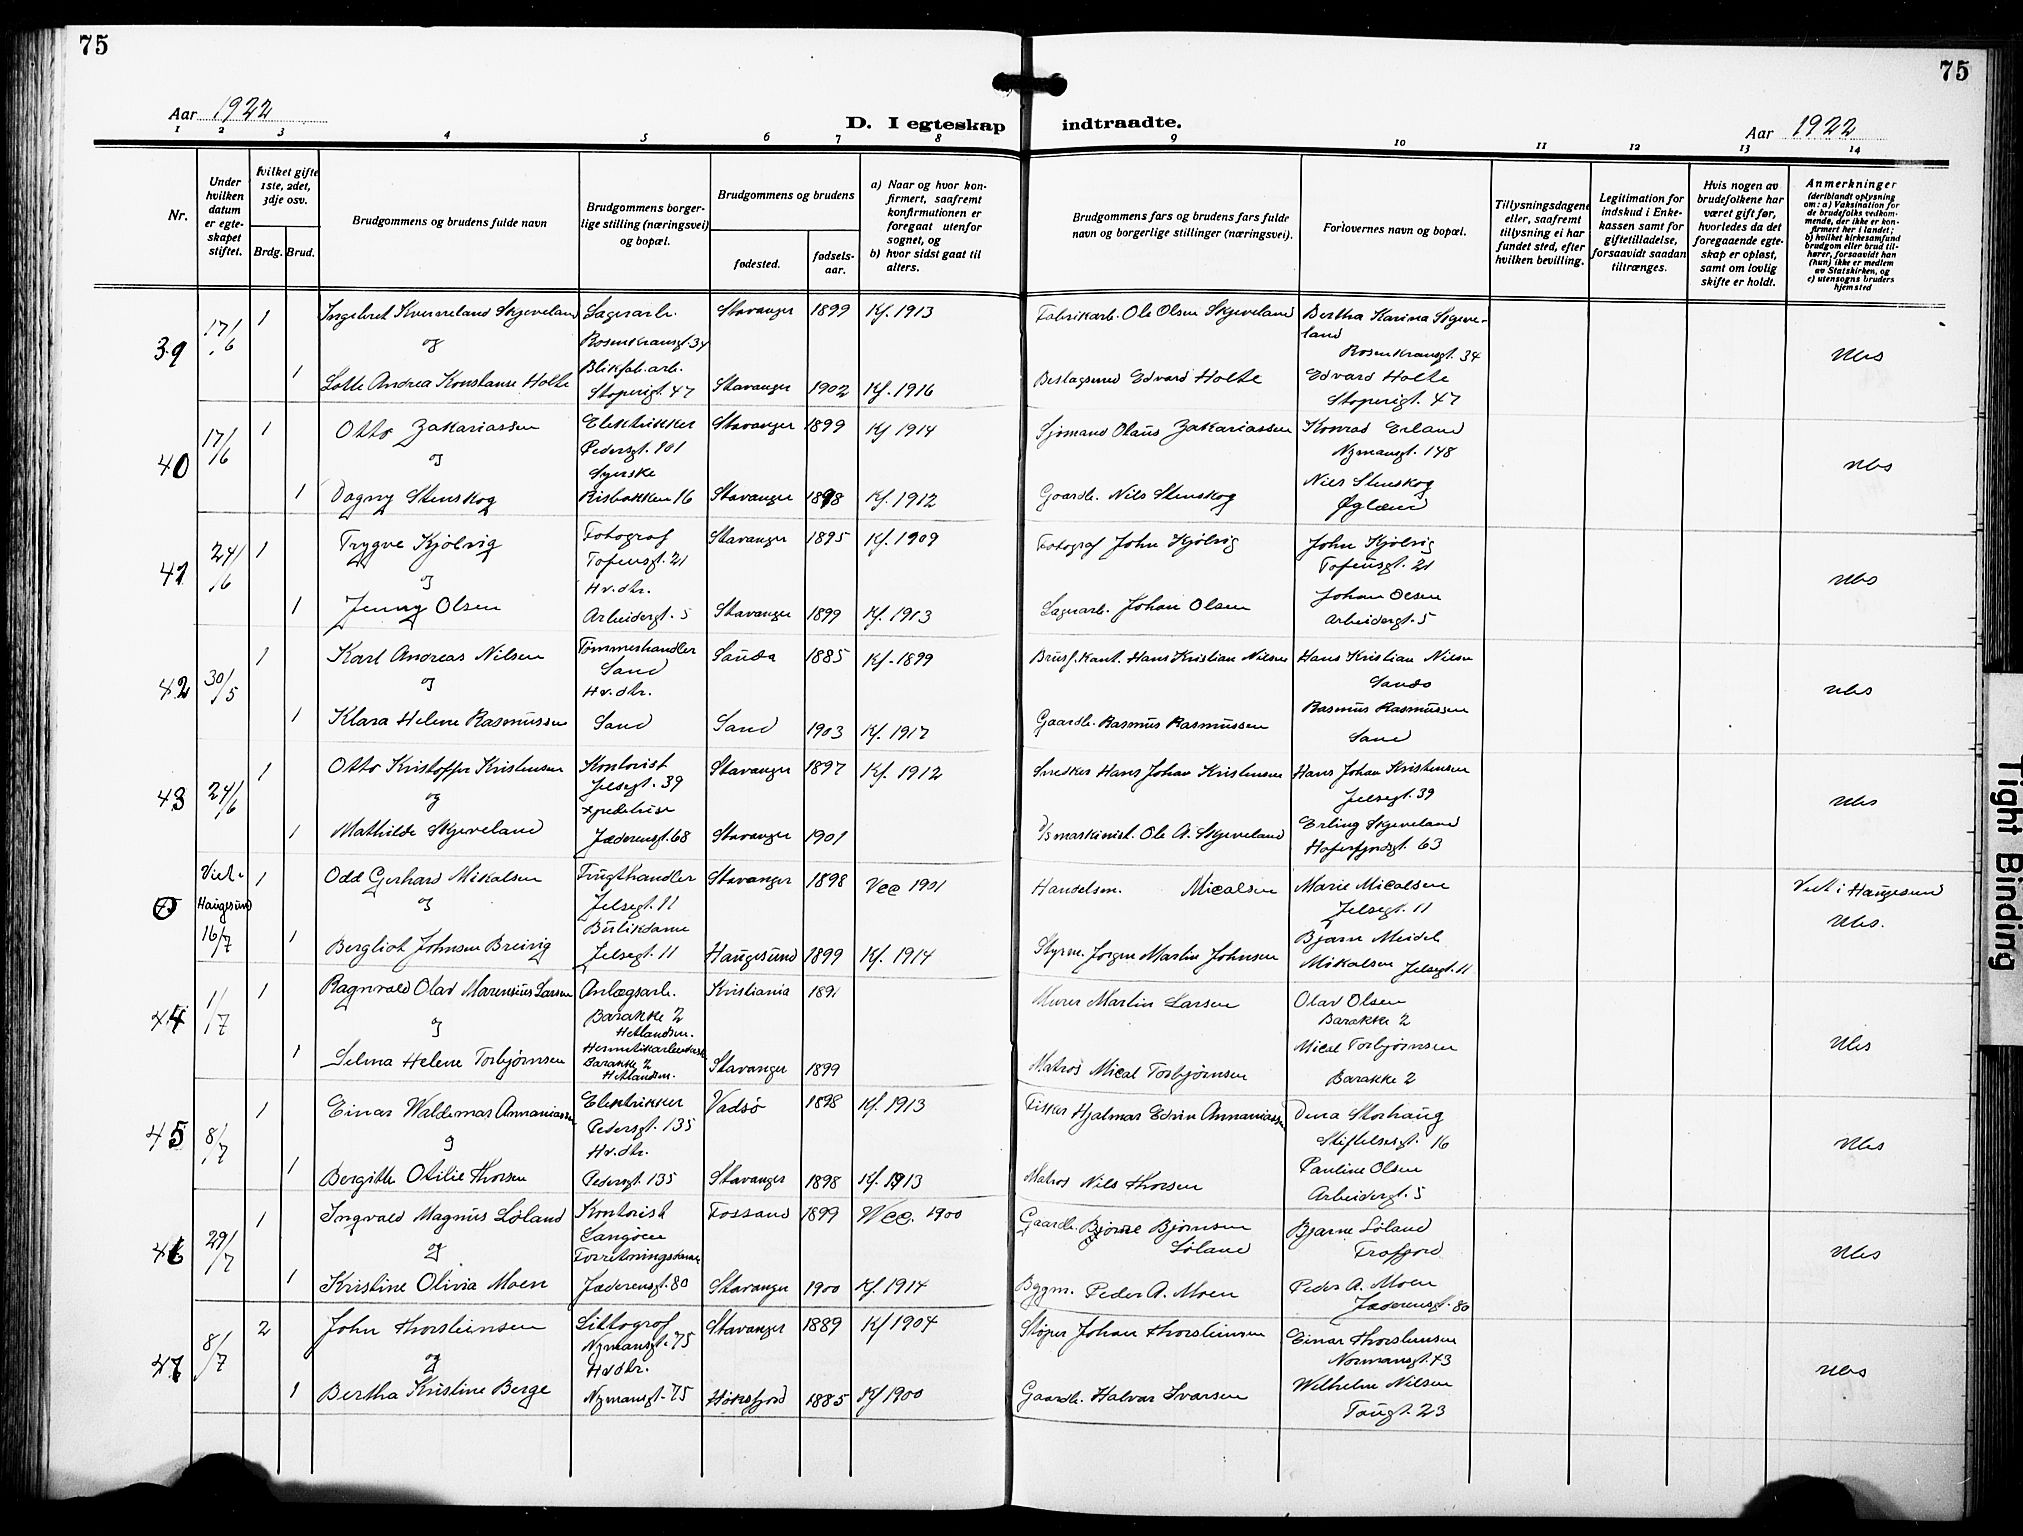 75
75
Aar 1922
D. I egteskap indtraadte.
Aar 1922
1 2 3 4 5 6 7 8 9 10 11 12 13 14
Nr.
Under hvilken datum er egteskapet stiftet.
hvilket gifte 1ste, 2det, 3dje osv.
Brdg. Brud.
Brudgommens og brudens fulde navn
Brudgommens borgerlige stilling (næringsvei) og bopæl.
Brudgommens og brudens
fødested.
fødselsaar.
a) Naar og hvor konfirmert, saafremt konfirmutionen er foregaat utenfor sognet, og
b) hvor sidst gaat til alters.
Brudgommens fars og brudens fars fulde navn og borgerlige stillinger (næringsvei).
Forlovernes navn og bopæl.
Tillysningsdagene eller, saafremt tillysning ei har fundet sted, efter hvilken bevilling.
Legitimation for indskud i Enkekassen samt for giftetilladelse, forsaavidt saadan tiltrænges.
Hvis nogen av brudefolkene har været gift før, hvorledes da det foregaaende egteskap er opløst, samt om lovlig skifte er holdt.
Anmerkninger (deriblandt oplysning om: a) Vaksination for de brudefolks vedkommende, der ikke er konfirmert her i landet; b) hvilket kirkesamfund brudgom eller brud tilhører, forsaavidt han (hun) ikke er medlem av Statskirken, og c) utensogns bruders hjemsted
39 17/6 1 Ingebret Kverneland Skjeveland Sagarb. Rosenkransgt. 34 Stavanger 1899 Kf. 1913 Fabrikarb. Ole Olsen Skjeveland Bertha Karina Skjeveland Rosenkransgt. 34
og
1 Lotte Andrea Konstanse Holte Blikfab.arb. Støperigt. 47 Stavanger 1902 Kf. 1916 Beslagsmed Edvard Holte Edvard Holte Støperigt. 47
40 17/6 1 Otto Zakariassen Elektrikker Pedersgt. 101 Stavanger 1899 Kf 1914 Sjømand Olaus Zakariassen Konrad Erland Nymansgt. 148
og
1 Dagny Stenskog Syerske Risbakken 16 Stavanger 1898 Kf. 1912 Gaardb. Nils Stenskog Niels Stenskog Øglænd
41 24/6 1 Trygve Kjølvig Fotograf Tofensgt. 21 Stavanger 1895 Kf. 1909 Fotograf John Kjølvig John Kjølvig Tofensgt. 21
og
1 Jenny Olsen Hv.dtr. Arbeidergt. 5 Stavanger 1899 Kf. 1913 Sagarb. Johan Olsen Johan Olsen Arbeidergt. 5
42 30/5 1 Karl Andreas Nilsen Tømmerhandler Sand Sauda 1885 Kf. 1899 Brusf.kant. Hans Kristian Nilsen Hans Kristian Nilsen
og
1 Klara Helene Rasmussen Hv.dtr. Sand Sand 1903 Kf. 1917 Gaardb. Rasmus Rasmussen Rasmus Rasmussen Sand
43 24/6 1 Otto Kristoffer Kristensen Kontorist Jelsegt. 39 Stavanger 1897 Kf. 1912 Snedker Hans Johan Kristensen Hans Johan Kristensen Jelsegt. 39
og
1 Mathilde Skjeveland Jæderensgt. 68 Stavanger 1901 Ole A. Skjeveland Erling Skjeveland Hafrsfjordsgt. 63
Viet i Haugesund 16/7 1 Odd Gerhard Mikalsen Frugthandler Jelsegt. 11 Stavanger 1898 Vcc 1901 Handelsm. Micalsen Marie Micalsen Jelsegt. 11 Viet i Haugesund
og
1 Bergliot Johnsen Breivig Butikdame Jelsegt. 11 Haugesund 1899 Kf. 1914 Styrm. Jørgen Martin Johnsen Bjarn Meidel Mikalsen Jelsegt. 11
44 1/7 1 Ragnvald Olav Marensius Larsen Anlægsarb. Barakke 2 Hetlandsm. Kristiania 1891 Murer Martin Larsen Olav Olsen Barakke 2
og
1 Selma Helene Torbjørnsen Hermetikarbeiderske Barakke 2 Hetlandsm. Stavanger 1899 Matros Mical Torbjørnsen Mical Torbjørnsen Barakke 2
45 8/7 1 Einar Waldemar Annaniassen Elektrikker Pedersgt. 135 Vadsø 1898 Kf. 1913 Fisker Hjalmar Edvin Annaniassen Dina Storhaug Stiftelsesgt. 16
og
1 Bergitte Otilie Thorsen Hv.dtr. Pedersgt. 135 Stavanger 1898 Kf. 1913 Matros Nils Thorsen Pauline Olsen Arbeidergt. 5
46 29/7 1 Ingvald Magnus Løland Kontorist Langøen Fossand 1899 Vcc. 1900 Gaardb. Bjørne Bjørnsen Løland Bjarne Løland Frafjord
og
1 Kristine Olivia Moen Forretningsdame Jæderensgt. 80 Stavanger 1900 Kf. 1914 Bygm. Peder A. Moen Peder A. Moen Jæderensgt. 80
47 8/7 2 John Thorsteinsen Littograf Nymansgt. 75 Stavanger 1889 Kf 1904 Støper Johan Thorsteinsen Einar Thorsteinsen Normansgt. 43
og
1 Bertha Kristine Berge Hv.dtr. Nymansgt. 75 Høksfjord 1885 Kf 1900 Gaardb. Halvar Ivarsen Wilhelm Nilsen Tougt. 23
Tight Binding